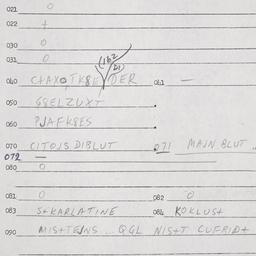 021 0
022 +
030 0
031 0
(162
21)
040 C+AXOTK8E/DER 061 —
050 G8ELZUXT
060 PJAFK8ES
070 CITOJS DIBLUT 071 MAJN BLUT
072 —
080 0
081 0 082 0
083 S+KARLATINE 084 KOKLUS+
090 MIS+TEJNS .. QGL NIS+T CUFRID+